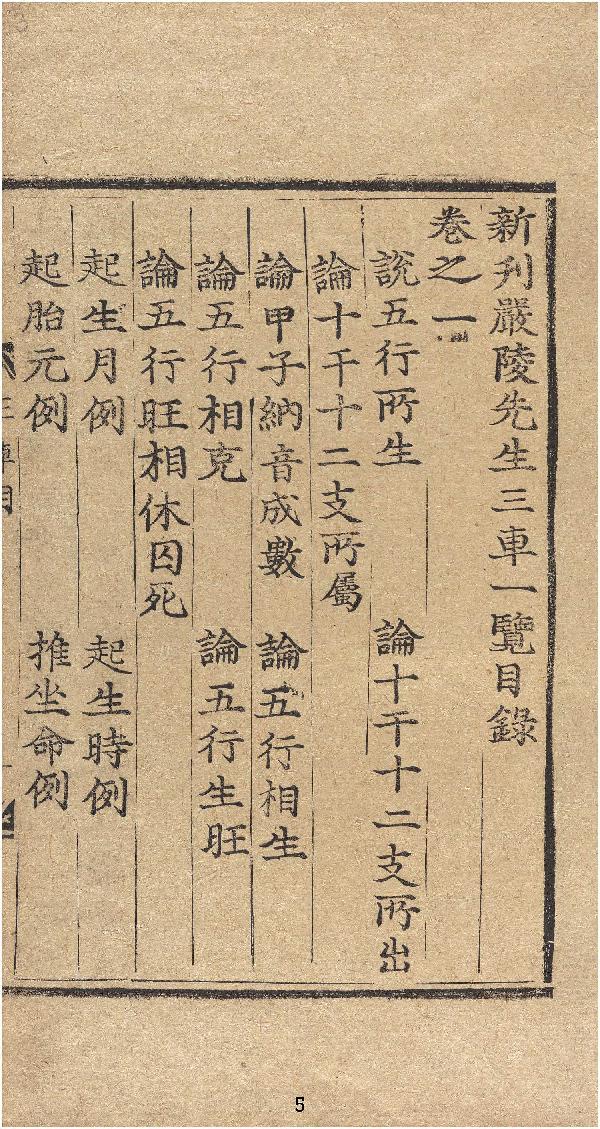 新刊嚴陵先生三車一覽目錄
卷之一
說五行所生　論十干十二支所出
論十干十二支所屬
論甲子納音成數　論五行相生
論五行相克　論五行生旺
論五行旺相休囚死
起生月例　起生時例
起胎元例　推坐命例
5